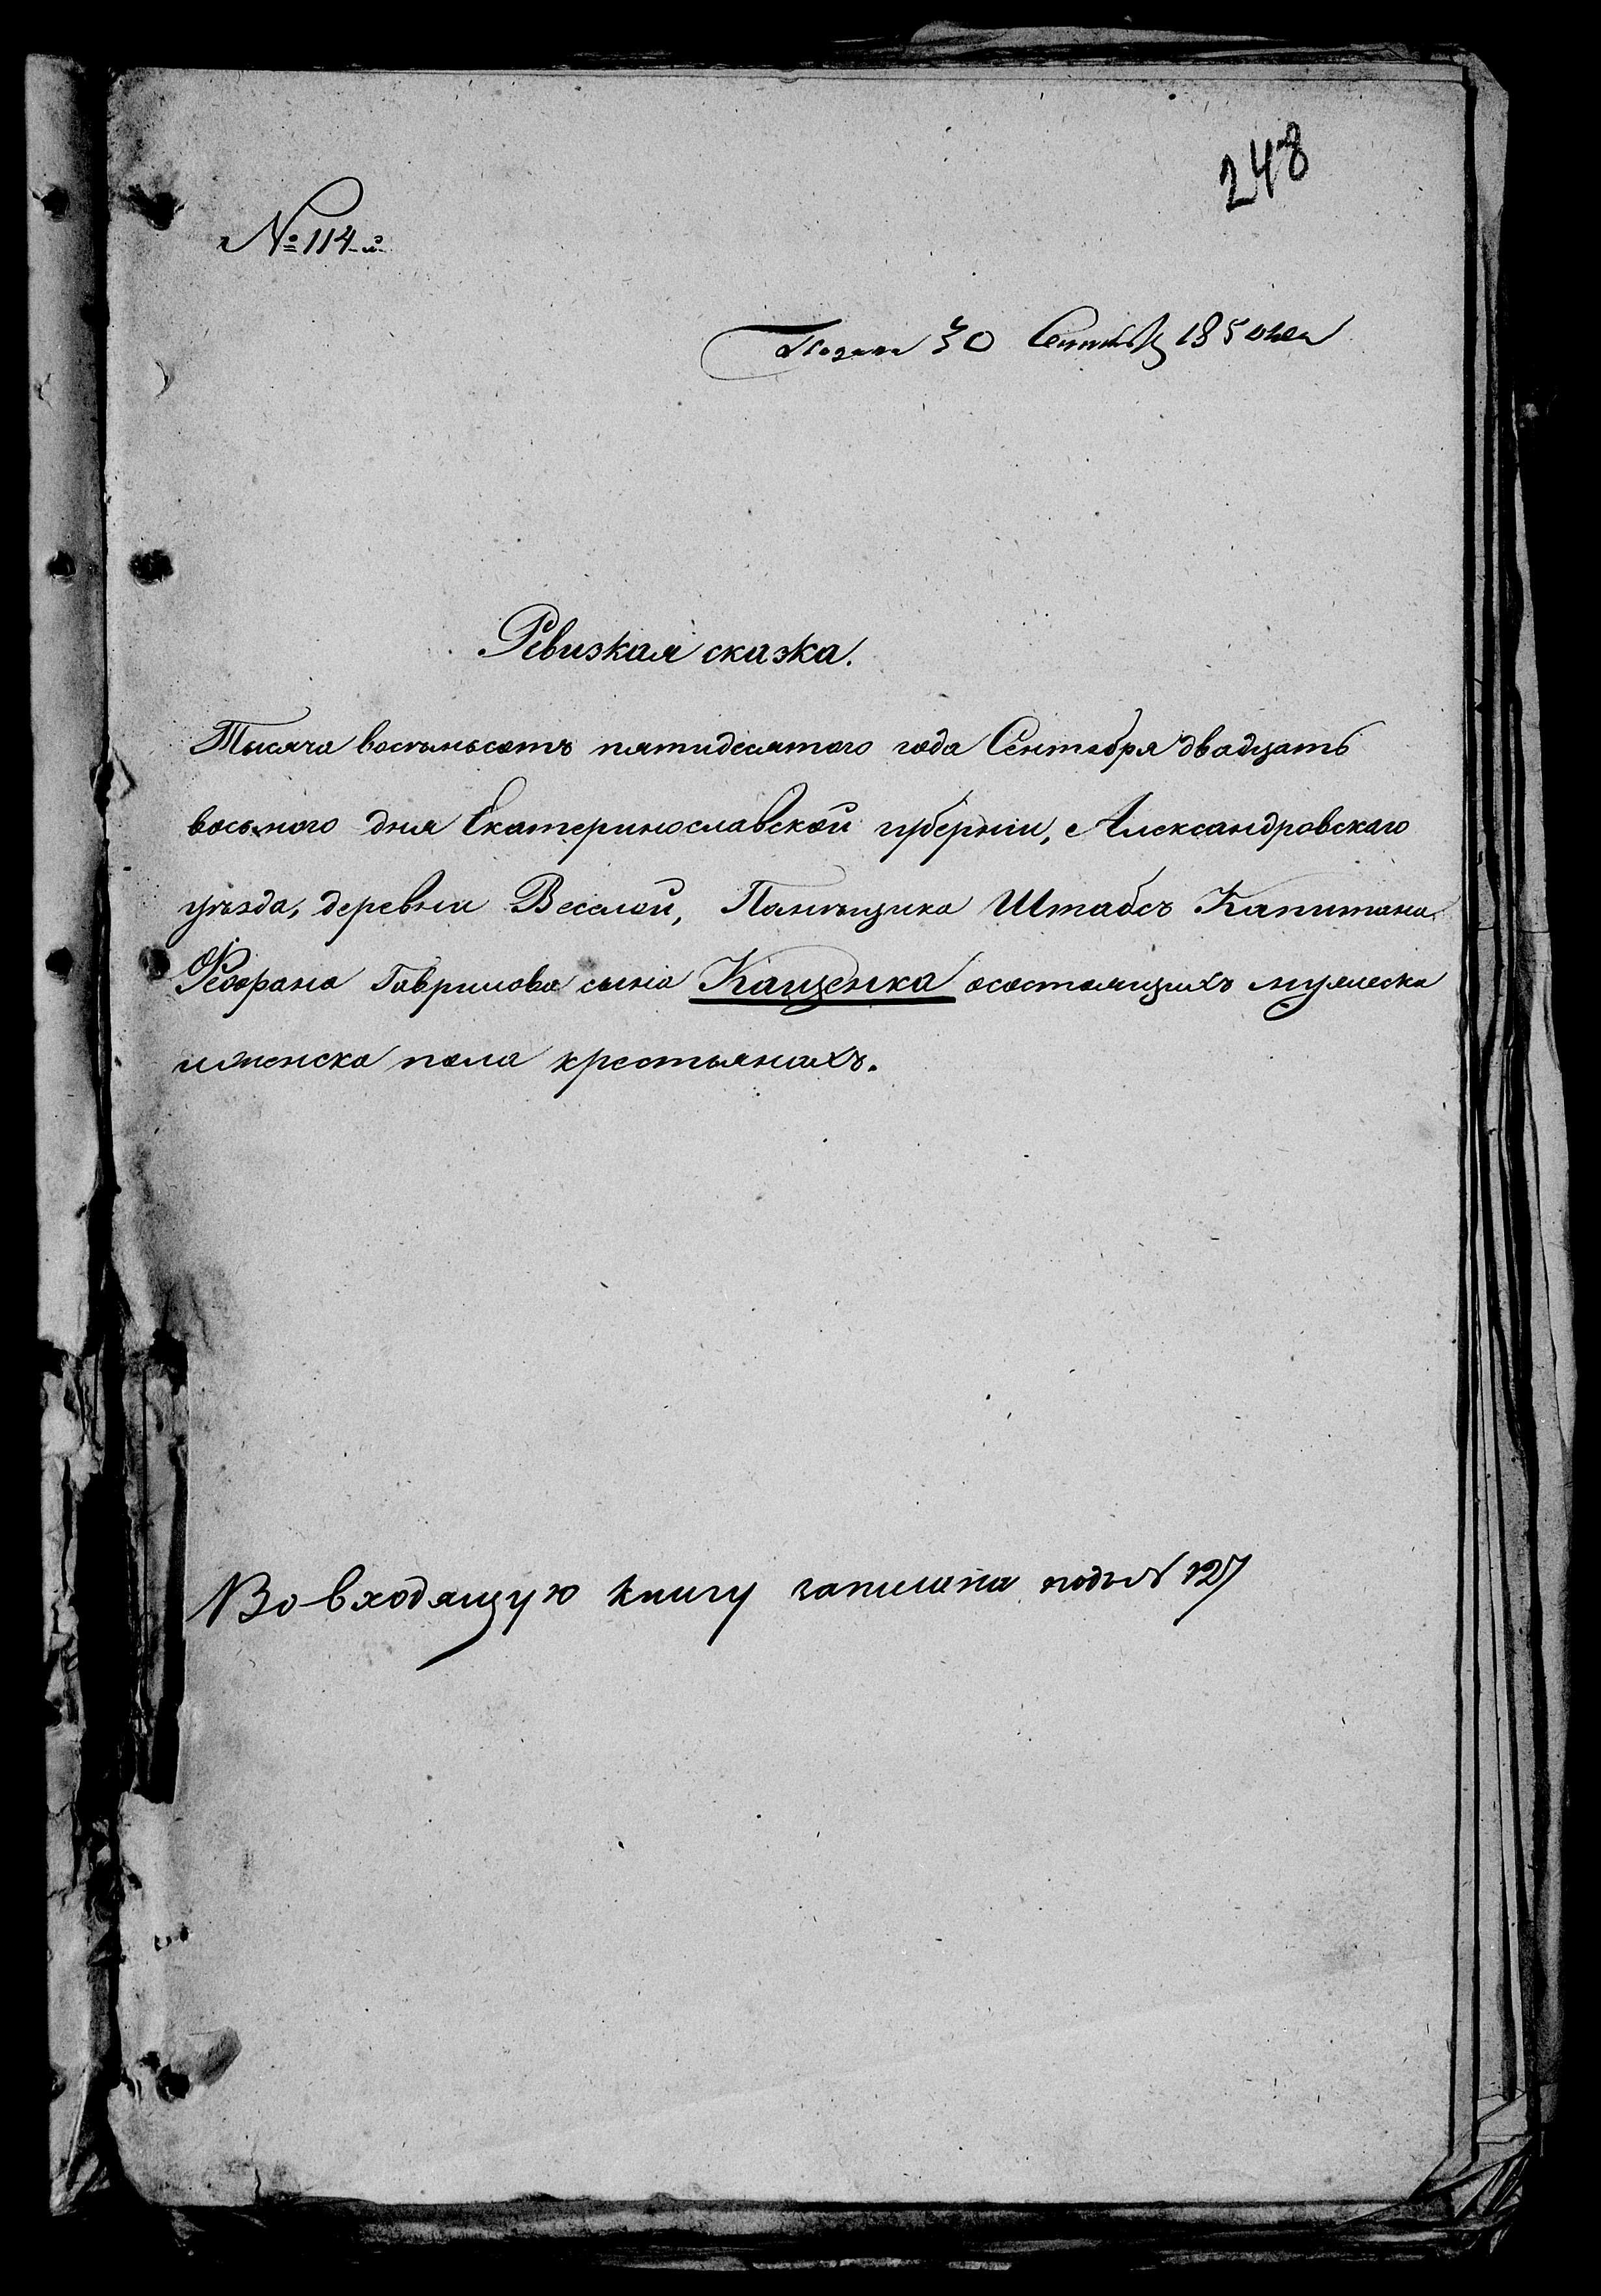 248
№ 114-й
Подана 30 Сентяб 1850 года
Ревизкая сказка.
Тысяча восьмьсотъ пятидесятого года Сентября двадцать
восьмого дня Екатеринославской губерніи, Александровскаго
уѣзда, деревни Веселой, Помѣщика Штабсъ Капитана
Гаврилова сына Кащенка осостоящихъ мужеска
иженска пола крестьянахъ.
Во входящую книгу записана подъ № 127